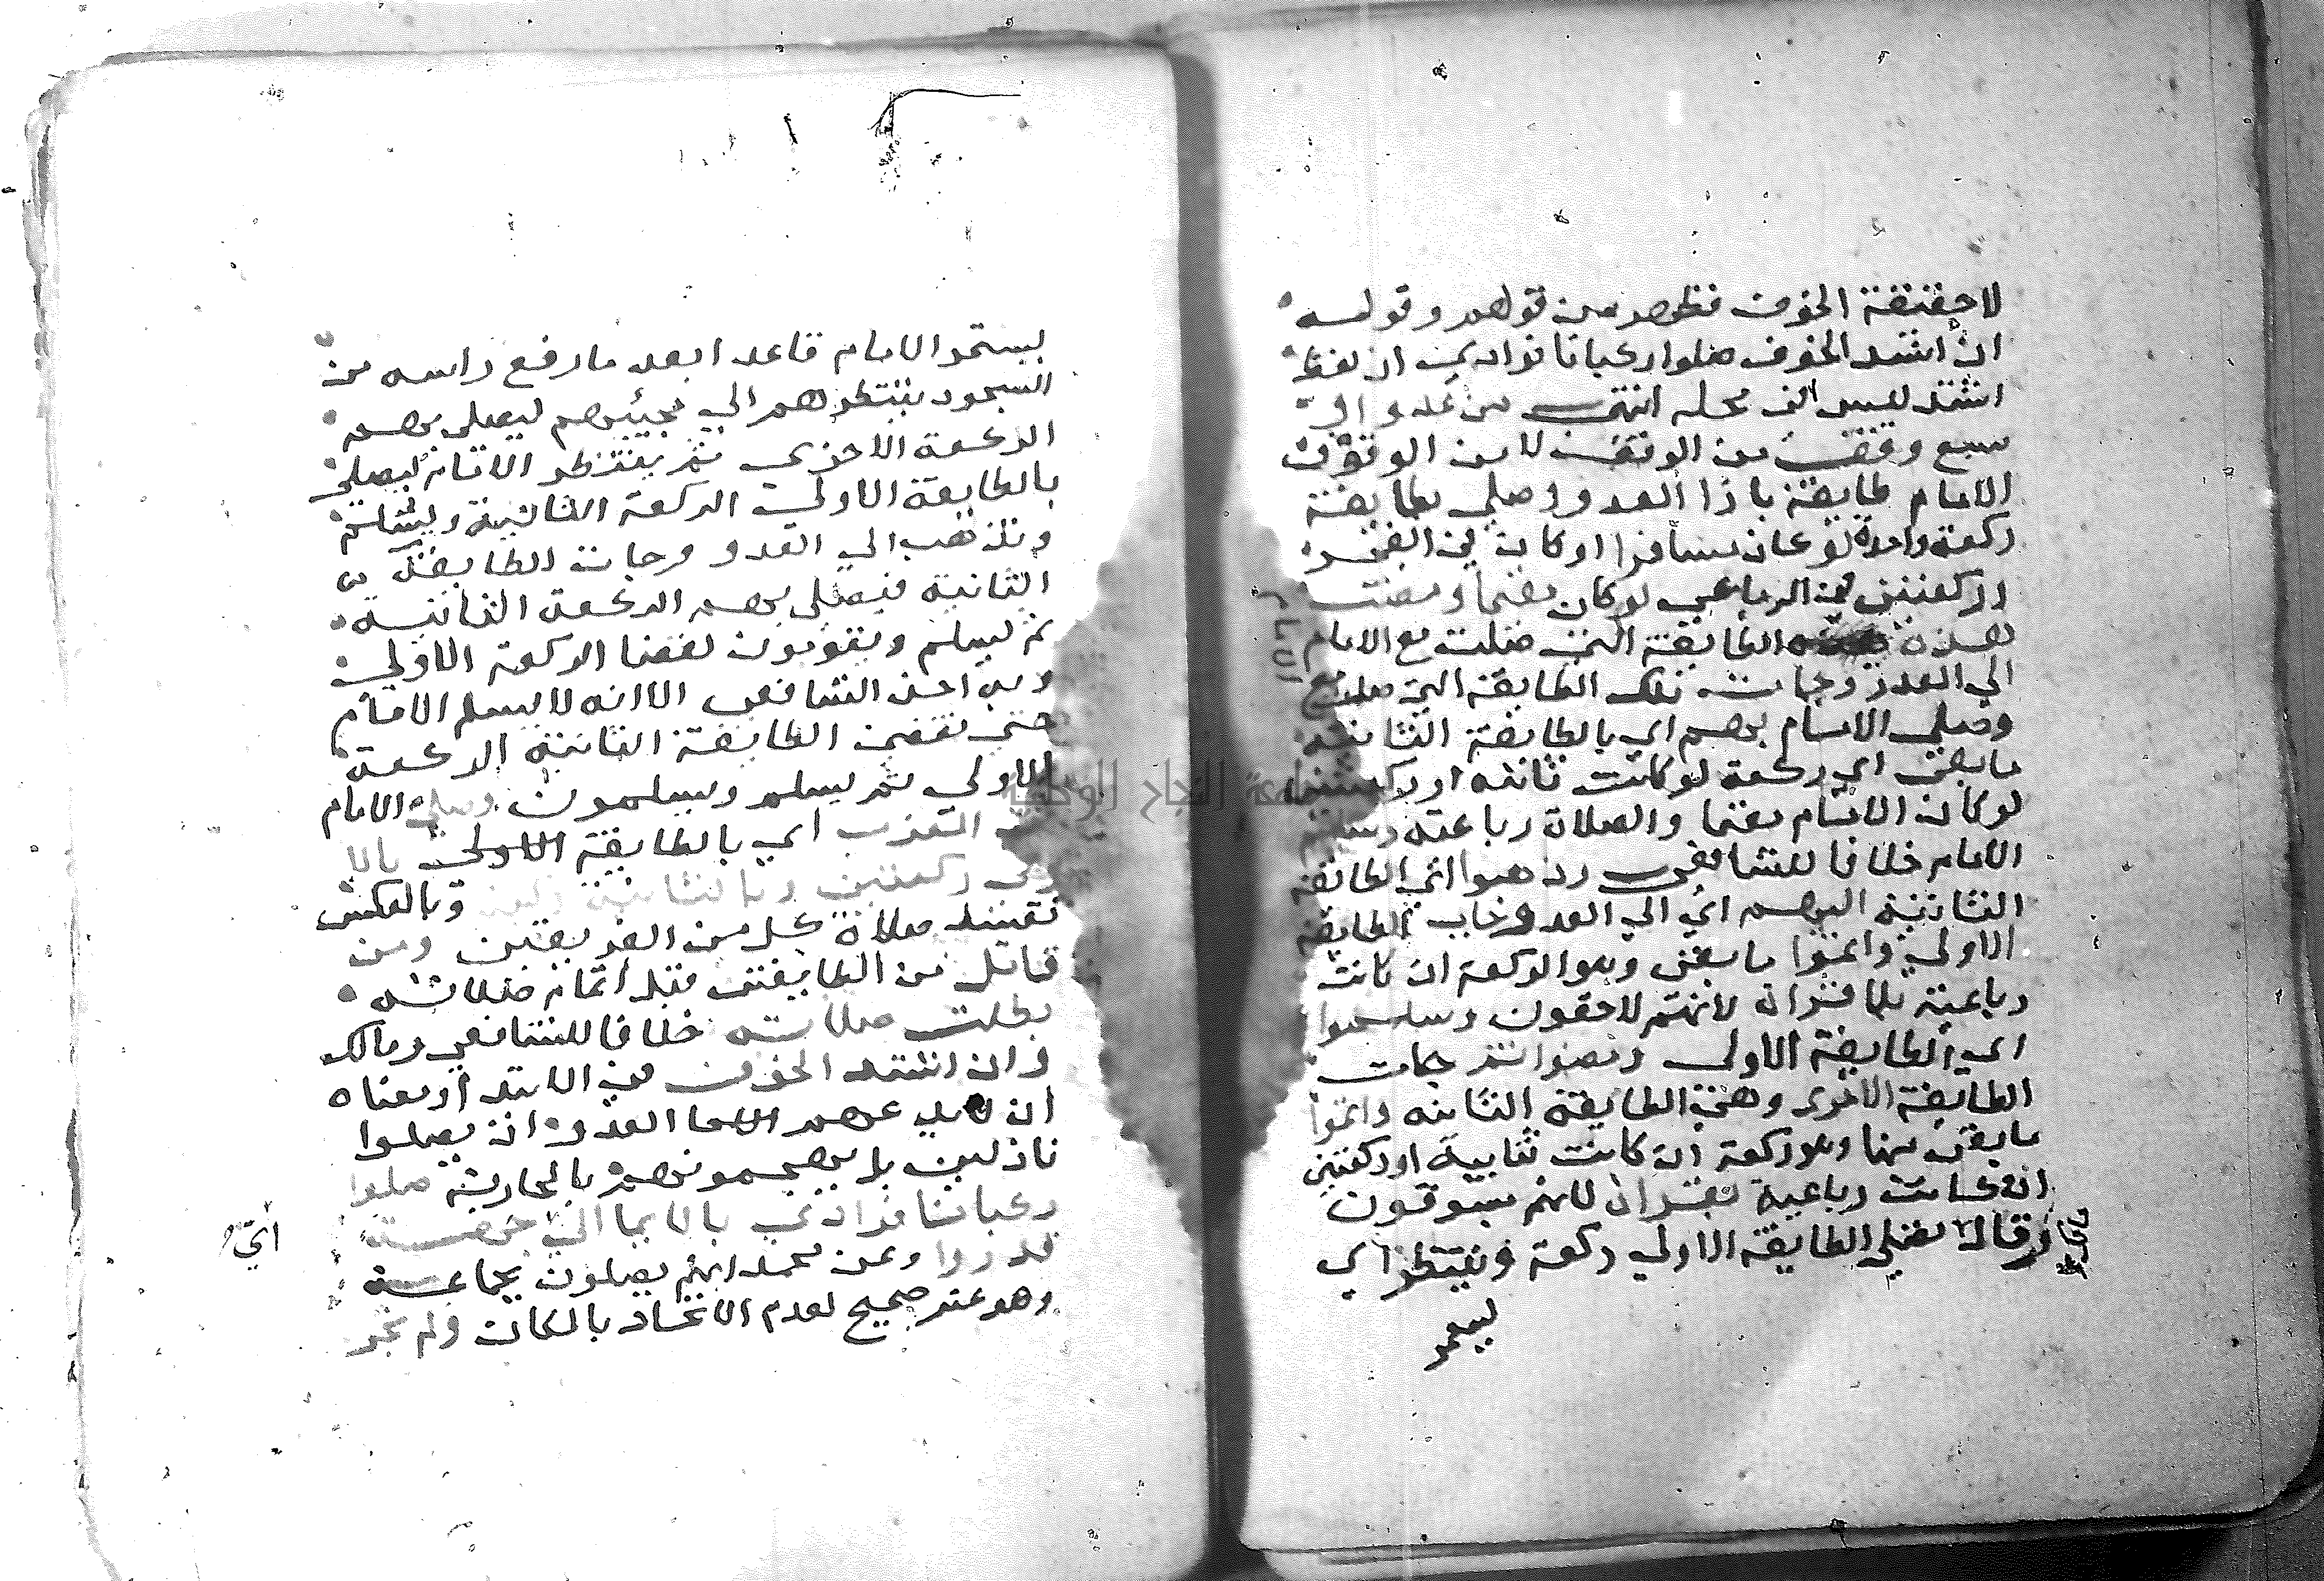 لا حقيقة الخوف فظهر من قولهم وقوله
ان اشتد الخوف صلوا ركبانا فرادي ان لفظ
اشتد ليس في محله انتهى من عدو او
سبع وقف من الوقف لا من الوقوف
الامام طايفة بازا العدو وصلي بطايفة
ركعة واحدة لو كان مسافرا او كان في الفجر
وركعتين في الرباعي لو كان مقيما ومضت
هذه الطايفة التي صلت مع الامام
الي العدو وجات تلك الطايفة التي
وصلي الامام بهم اي بالطايفة الثانية
ما بقي اي ركعة لو كانت ثانية او ركعتين
لو كان الامام مقيما والصلاة رباعية وسلم
الامام خلافا للشافعي وذهبوا اي الطايفة
الثانية اليهم اي الي العدو وجات الطايفة
الاولي واتموا ما بقي وهو الركعة ان كانت
رباعية بلا قران لانهم لاحقون وسلموا
اي الطايفة الاولى ومضوا ثم جات
الطايفة الاخرى وهي الطايفة الثانية واتموا
ما بقي منها وهو ركعة ان كانت ثنايية او ركعتين
ان كانت رباعية بقران لانهم مسبوقون
وقالا يصلي الطايفة الاولي ركعة وينتظر اي
يستمر
الامام
مالك
يستمر الامام قاعدا بعد ما رفع راسه من
السجود ينتظرهم الي مجيئهم ليصلي بهم
الركعة الاخري ثم ينتظر الامام ليصلي
بالطايفة الاولي الركعة الثانية ويسلم
وتذهب الي العدو وجات الطايفة
الثانية فيصلي بهم الركعة الثانية
ثم يسلم ويقومون لقضا الركعة الاولي
وبه اخذ الشافعي الا انه لا يسلم الامام
حتي تقضي الطايفة الثانية الركعة
الاولي ثم يسلم ويسلمون وصلي الامام
المغرب اي بالطايفة الاولى بالا
ولى ركعتين وبالثانية ركعة وبالعكس
تفسد صلاة كل من الفريقين ومن
قاتل من الطايفتين قبل اتمام صلاته
بطلت صلاته خلافا للشافعي ومالك
وان اشتد الخوف في الابتدا ومعناه
ان لا يدعهم العدو ان يصلوا
نازلين بل يهجمونهم بالمحاربة صلوا
ركبانا فرادي بالايما الي جهة
قدروا وعن محمد انهم يصلون بجماعة
وهو غير صحيح لعدم الاتحاد بالمكان ولم تجز
اي
جامعة النجاح الوطنية